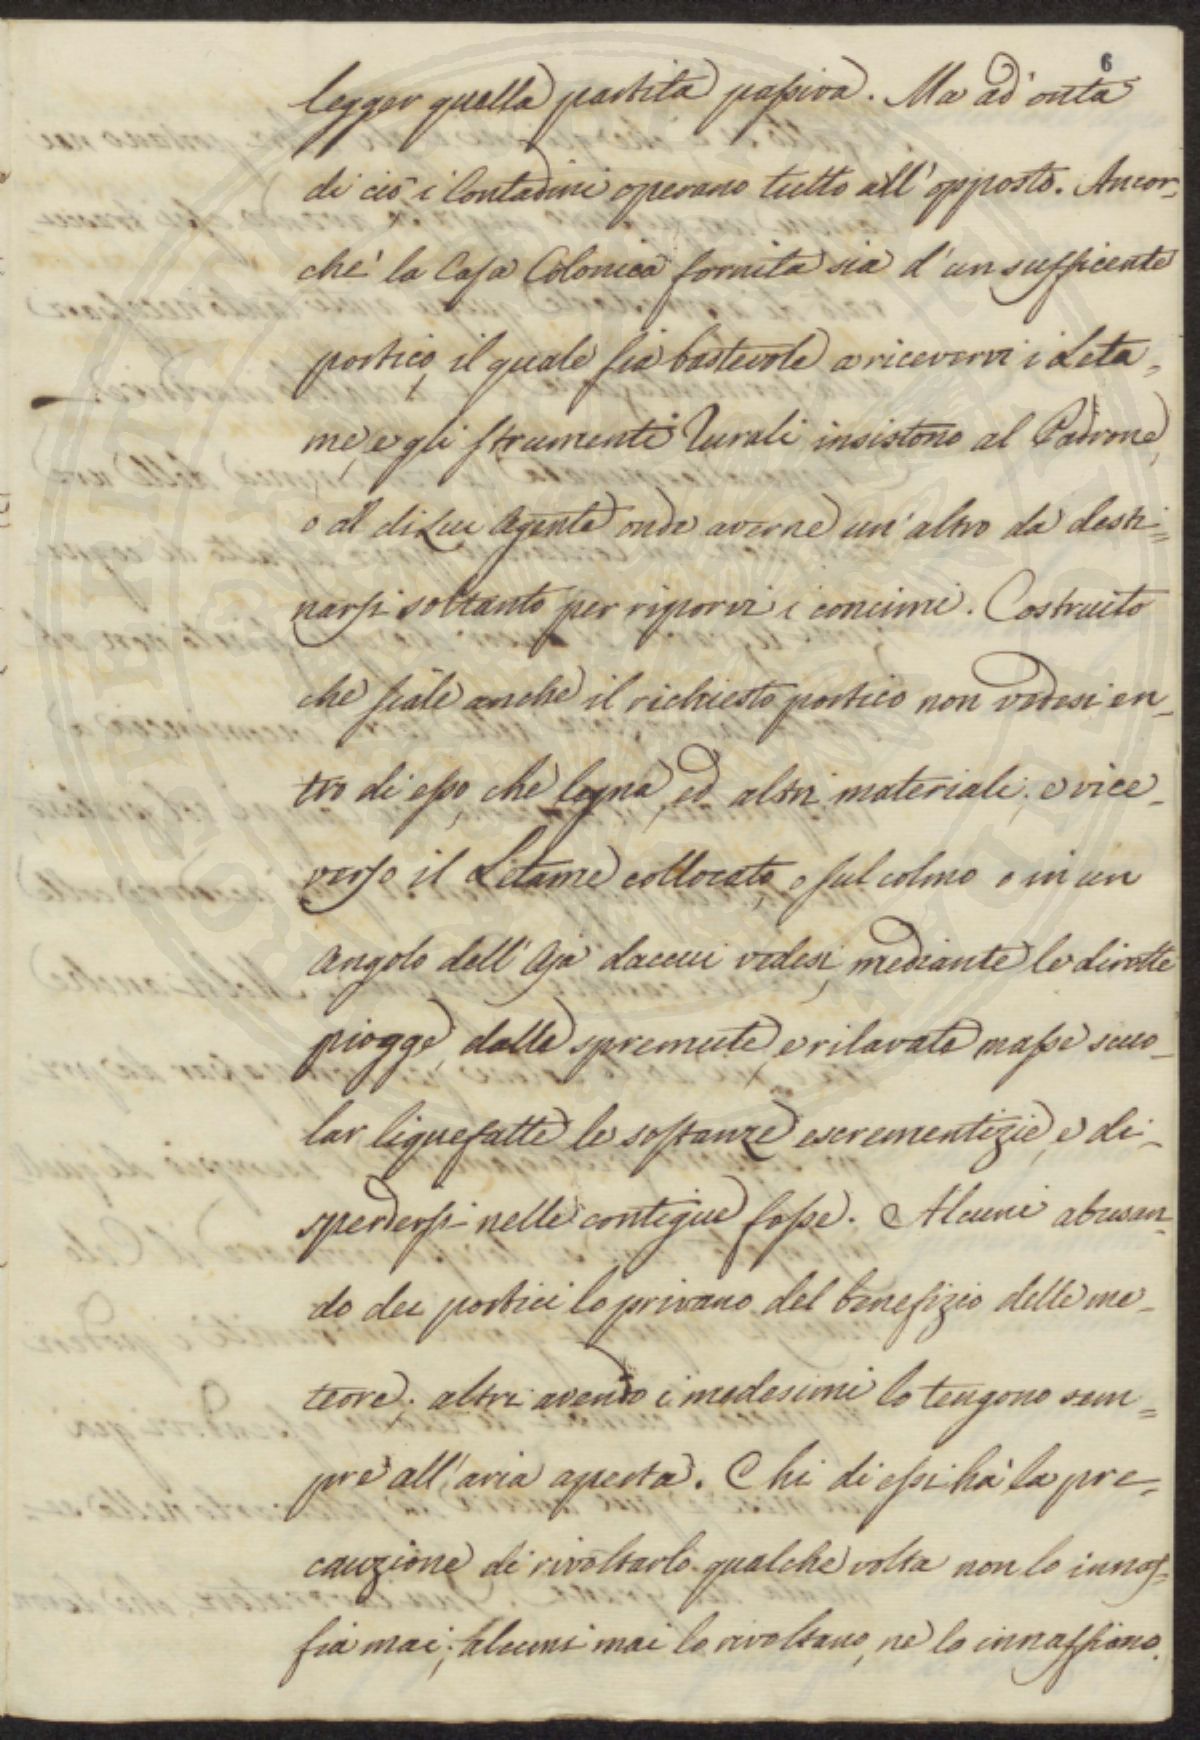 6
legger quella partita passiva. Ma ad onta
di ciò i Contadini operano tutto all'opposto. Ancor-
chè la Casa Colonica fornita sia d'un sufficente
portico, il quale sia bastevole a ricevervi i Leta-
me, e gli strumenti Rurali insistono al Padrone,
o al di Lui Agente onde averne un'altro da desti=
narsi soltanto per riporvi i concimi. Costruito
che siale anche il richiesto portico non vedesi en-
tro di esso, che legna, ed altri materiali; e vice-
verso il Letame collocato, o sul colmo o in un
angolo dell'Aja daccui vedesi, mediante le dirotte
piogge, dalle spremute, e rilavate masse scuo-
lar liquefatte le sostanze escrementizie, e di-
sperdersi nelle contigue fosse. Alcuni abusan-
do dei portici lo privano del benefizio delle me-
teore; altri avendo i medesimi lo tengono sem=
pre all'aria aperta. Chi di essi hà la pre-
cauzione di rivoltarlo qualche volta non lo innaf-
fia mai; alcuni mai lo rivoltano, nè lo innaffiano.